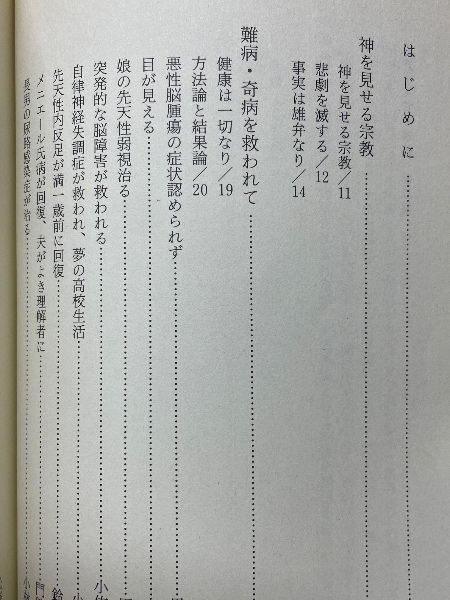 はじめに
神を見せる宗教
神を見せる宗教／11
悲劇を滅する／12
事実は雄弁なり／14
難病・奇病を救われて
健康は一切なり／19
方法論と結果論／20
悪性脳腫瘍の症状認められず
目が見える
娘の先天性弱視治る
突発的な脳障害が救われる
自律神経失調症が救われ、夢の高校生活
先天性内反足が満一歳前に回復
メニエール氏病が回復、夫がよき理解者に
長男の尿路感染症が治る